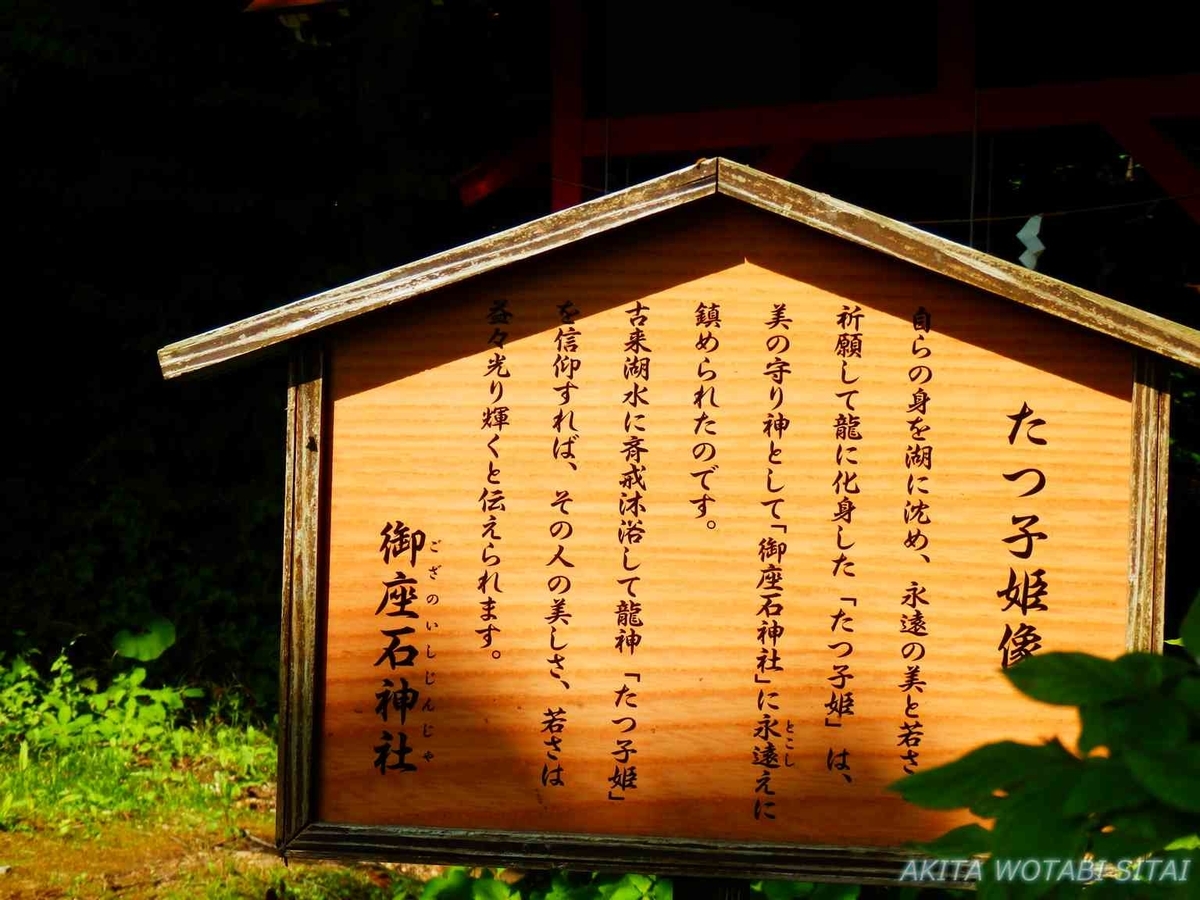 たつ子姫像
自らの身を湖に沈め、永遠の美と若さ
祈願して龍に化身した「たつ子姫」は、
美の守り神として「御座石神社」に永遠えに
とこし
鎮められたのです。
古来湖水に斉戒沐浴して龍神「たつ子姫」
を信仰すれば、その人の美しさ、若さは
益々光り輝くと伝えられます。
御座石神社
ござのいしじんじゃ
AKITA WOTABI SITAI